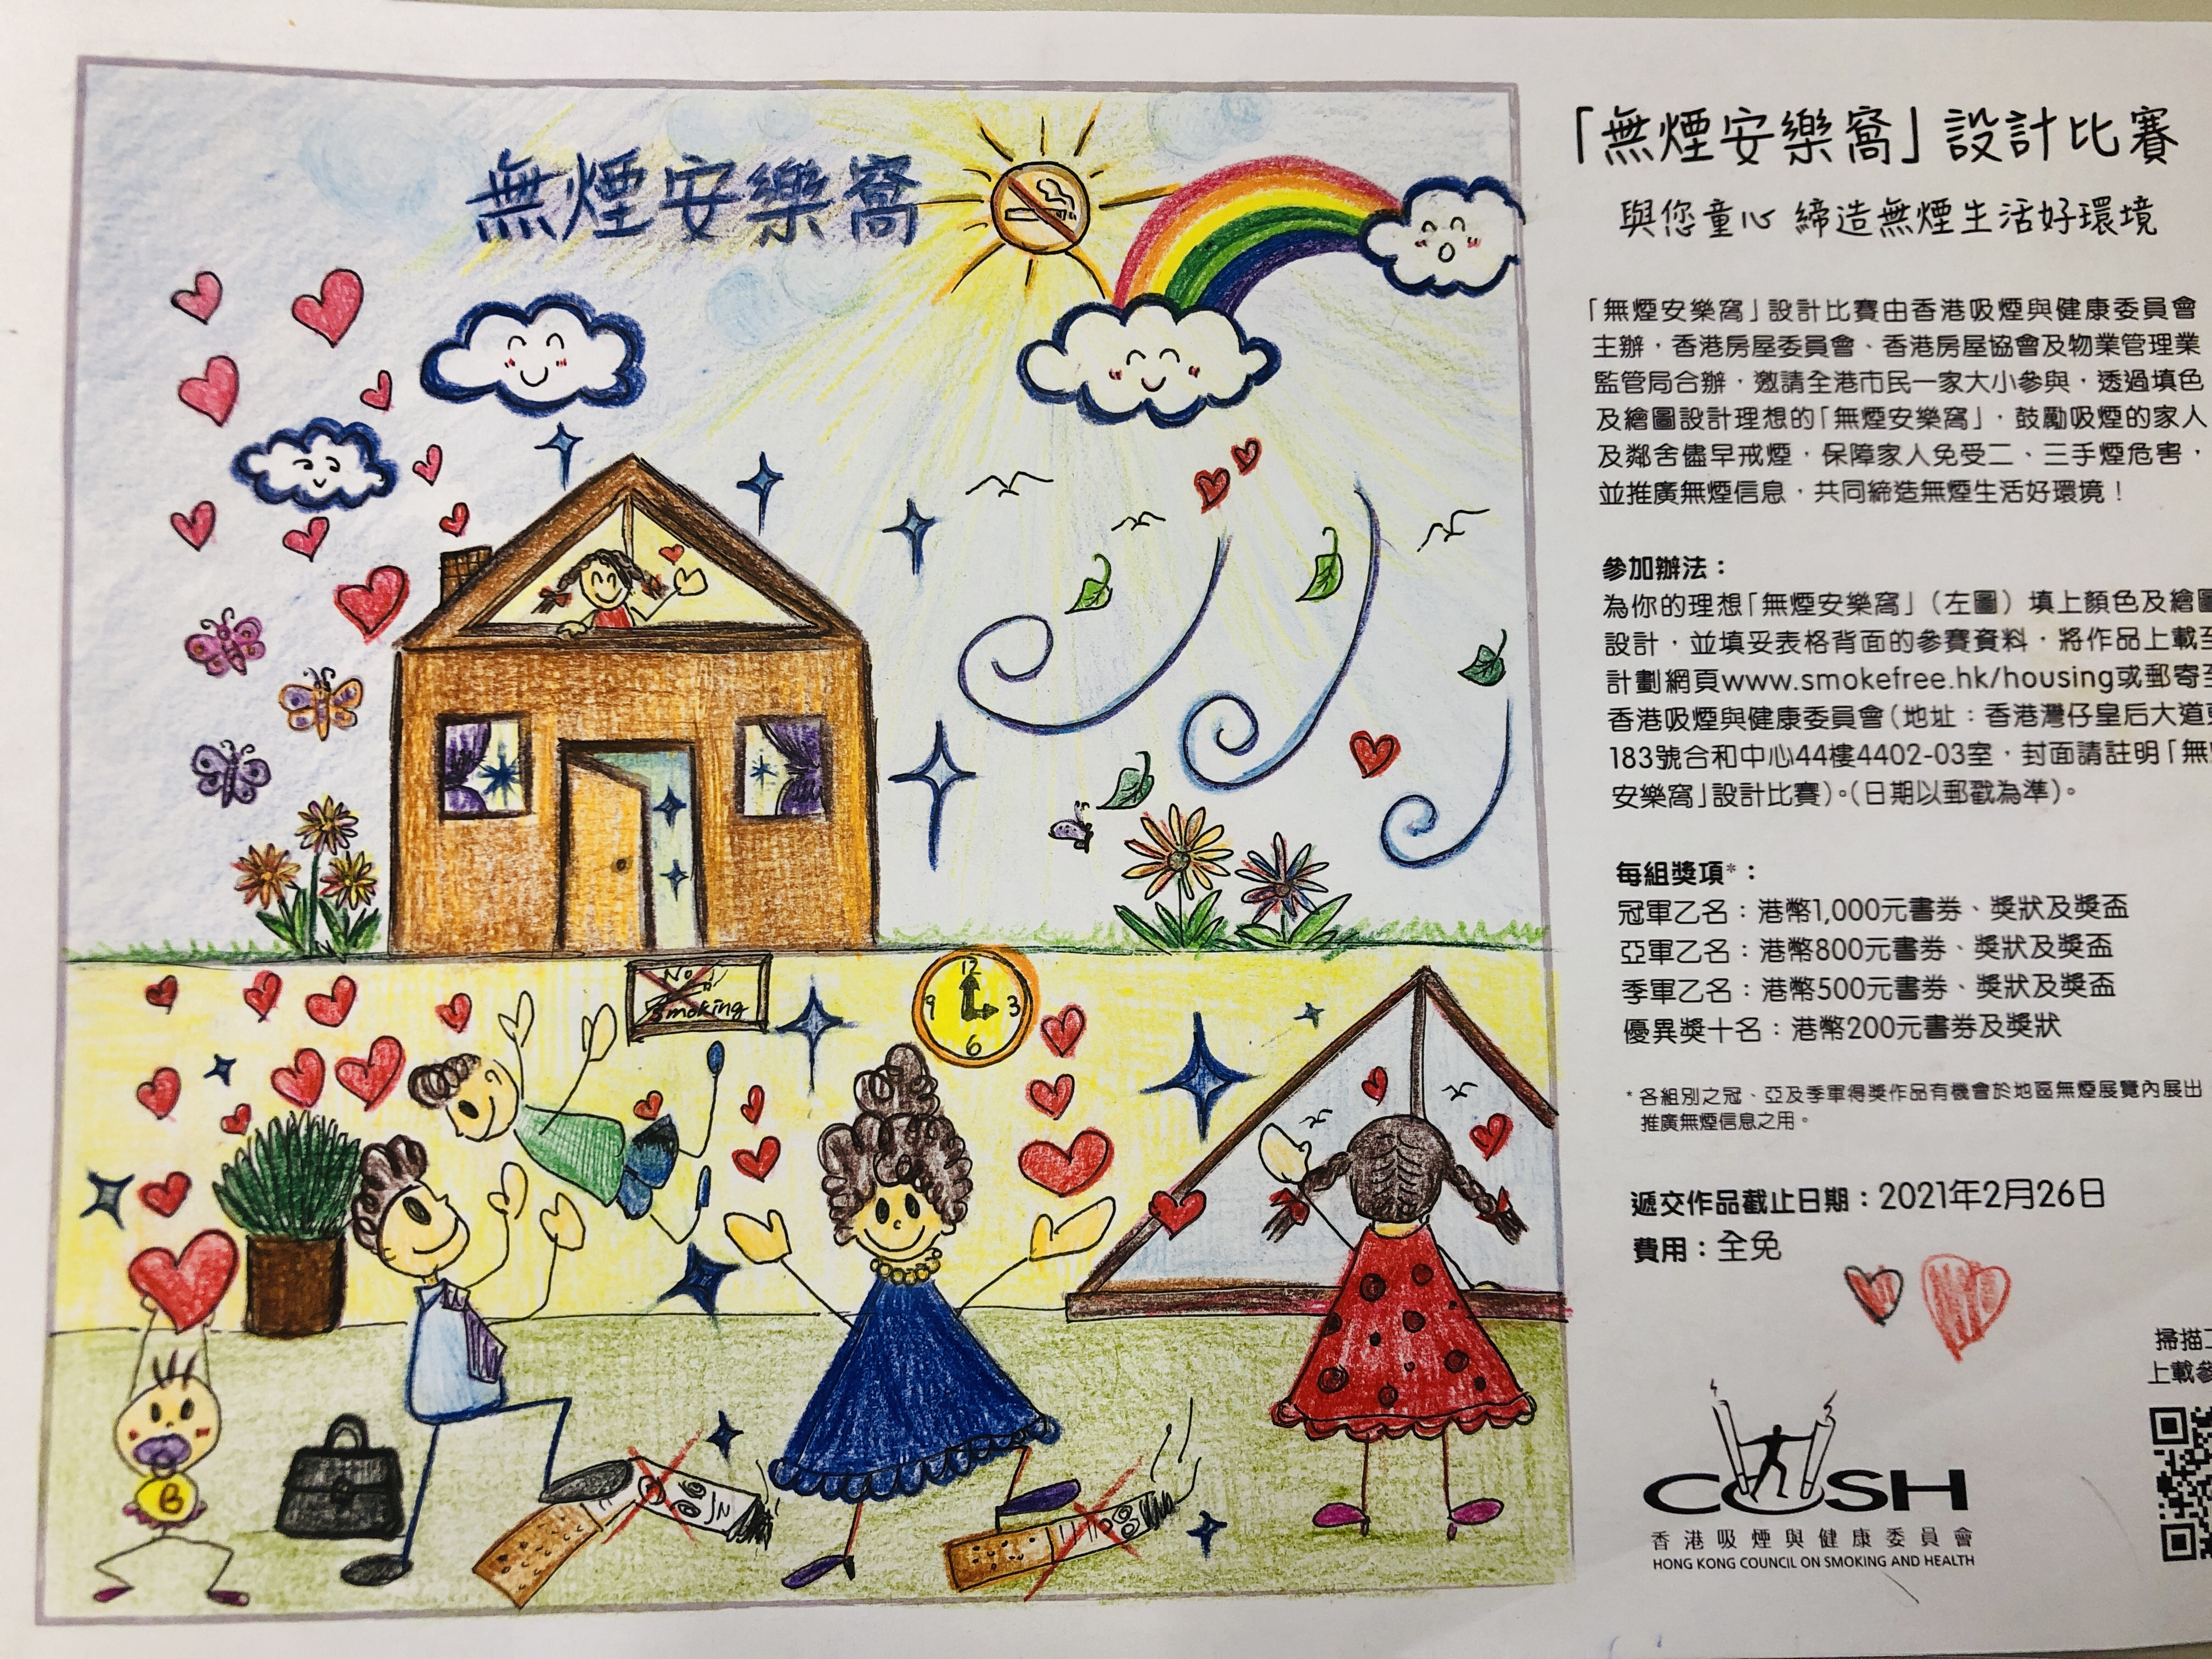 無煙安樂窩
12
3
6
9
No
Smoking
B
「無煙安樂窩」設計比賽
與您童心 締造無煙生活好環境
「無煙安樂窩」設計比賽由香港吸煙與健康委員會
主辦，香港房屋委員會、香港房屋協會及物業管理業
監管局合辦，邀請全港市民一家大小參與，透過填色
及繪圖設計理想的「無煙安樂窩」，鼓勵吸煙的家人
及鄰舍儘早戒煙，保障家人免受二、三手煙危害，
並推廣無煙信息，共同締造無煙生活好環境！
參加辦法：
為你的理想「無煙安樂窩」（左圖）填上顏色及繪圖
設計，並填妥表格背面的參賽資料，將作品上載至
計劃網頁www.smokefree.hk/housing或郵寄至
香港吸煙與健康委員會（地址：香港灣仔皇后大道東
183號合和中心44樓4402-03室，封面請註明「無
安樂窩」設計比賽）。（日期以郵戳為準）。
每組獎項*：
冠軍乙名：港幣1,000元書券、獎狀及獎盃
亞軍乙名：港幣800元書券、獎狀及獎盃
季軍乙名：港幣500元書券、獎狀及獎盃
優異獎十名：港幣200元書券及獎狀
*各組別之冠、亞及季軍得獎作品有機會於地區無煙展覽內展出
推廣無煙信息之用。
遞交作品截止日期：2021年2月26日
費用：全免
掃描
上載參
COSH
香港吸煙與健康委員會
HONG KONG COUNCIL ON SMOKING AND HEALTH